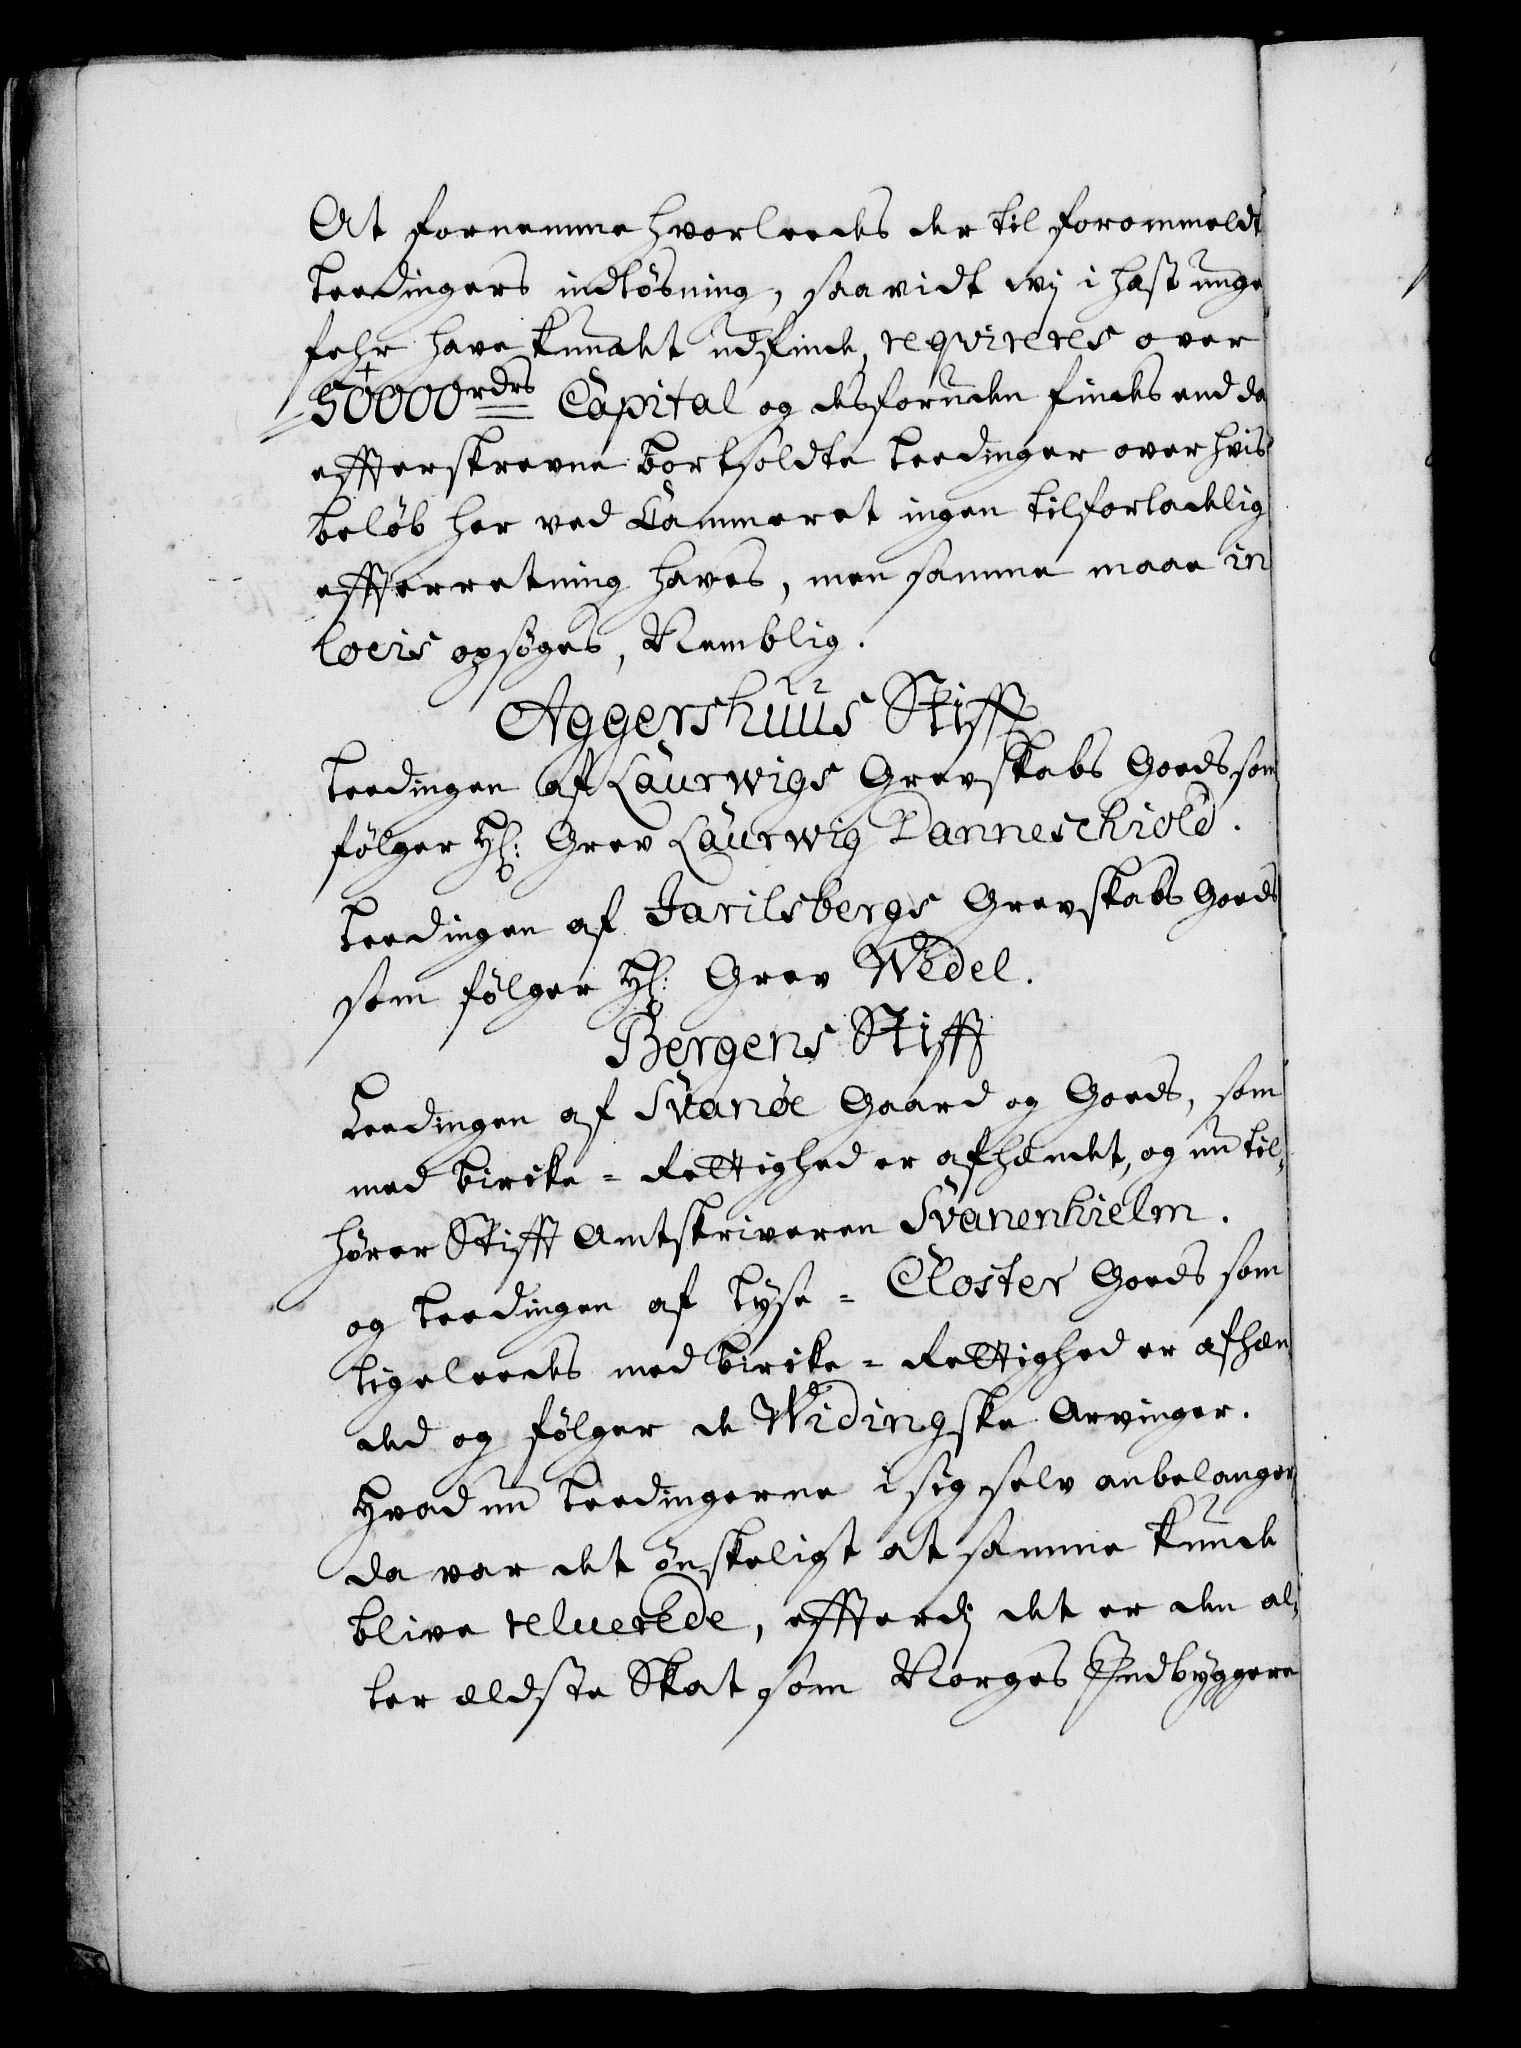 At fornemme hvorleedes der til forommeldte
Leedingers indløsning, saavidt wij i hast unge
fehr have kundet udfinde, reqvireres over
50000 rdrs Capital og desforuden findes end de
effterskrevne bortsoldte Leedinger over hvis
beløb her ved Cammeret ingen tilforladelig
effterretning haves, men samme maae in
locis opsøges, Nemblig.
Aggershuus Stifft
Leedingen af Laurwigs Grevskabs Goeds som
følger H: Grev Laurwig Danneschiold.
Leedingen af Jarilsbergs Grevskabs Goeds
som følger H: Grev Wedel.
Bergens Stifft
Leedingen af Svanøe Gaard og Goeds, som
med birike-Rettighed er afhændet, og nu til-
hører Stifft Amtskriveren Svanenhielm.
og Leedingen af Lyse-Closter Goeds som
ligeleedes med birike-Rettighed er afhæn
ded og følger de Widingske Arvinger.
Hvad nu Leedingerne i sig selv anbelanger,
da var det ønskeligt at samme kunde
blive reluerede, effterdj det er den al-
ler ældste Skat som Norges Indbyggere